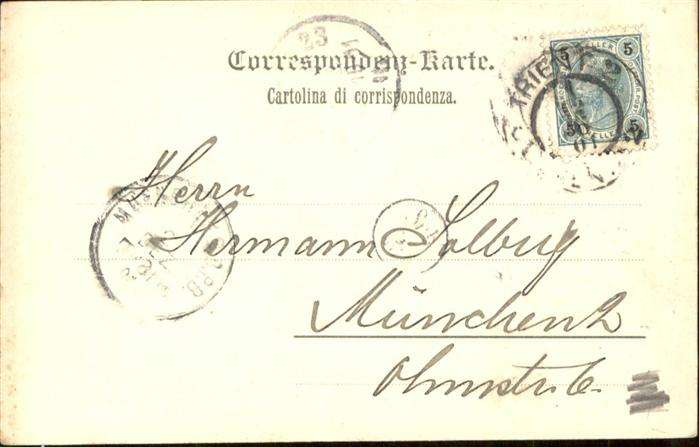 23
Correspondenz-Karte.
Cartolina di corrispondenza.
5 HELLER 5
TRIENT
5 HELLER 5
Herrn
Hermann Solbrig
München 2
Ohmstr. 6.